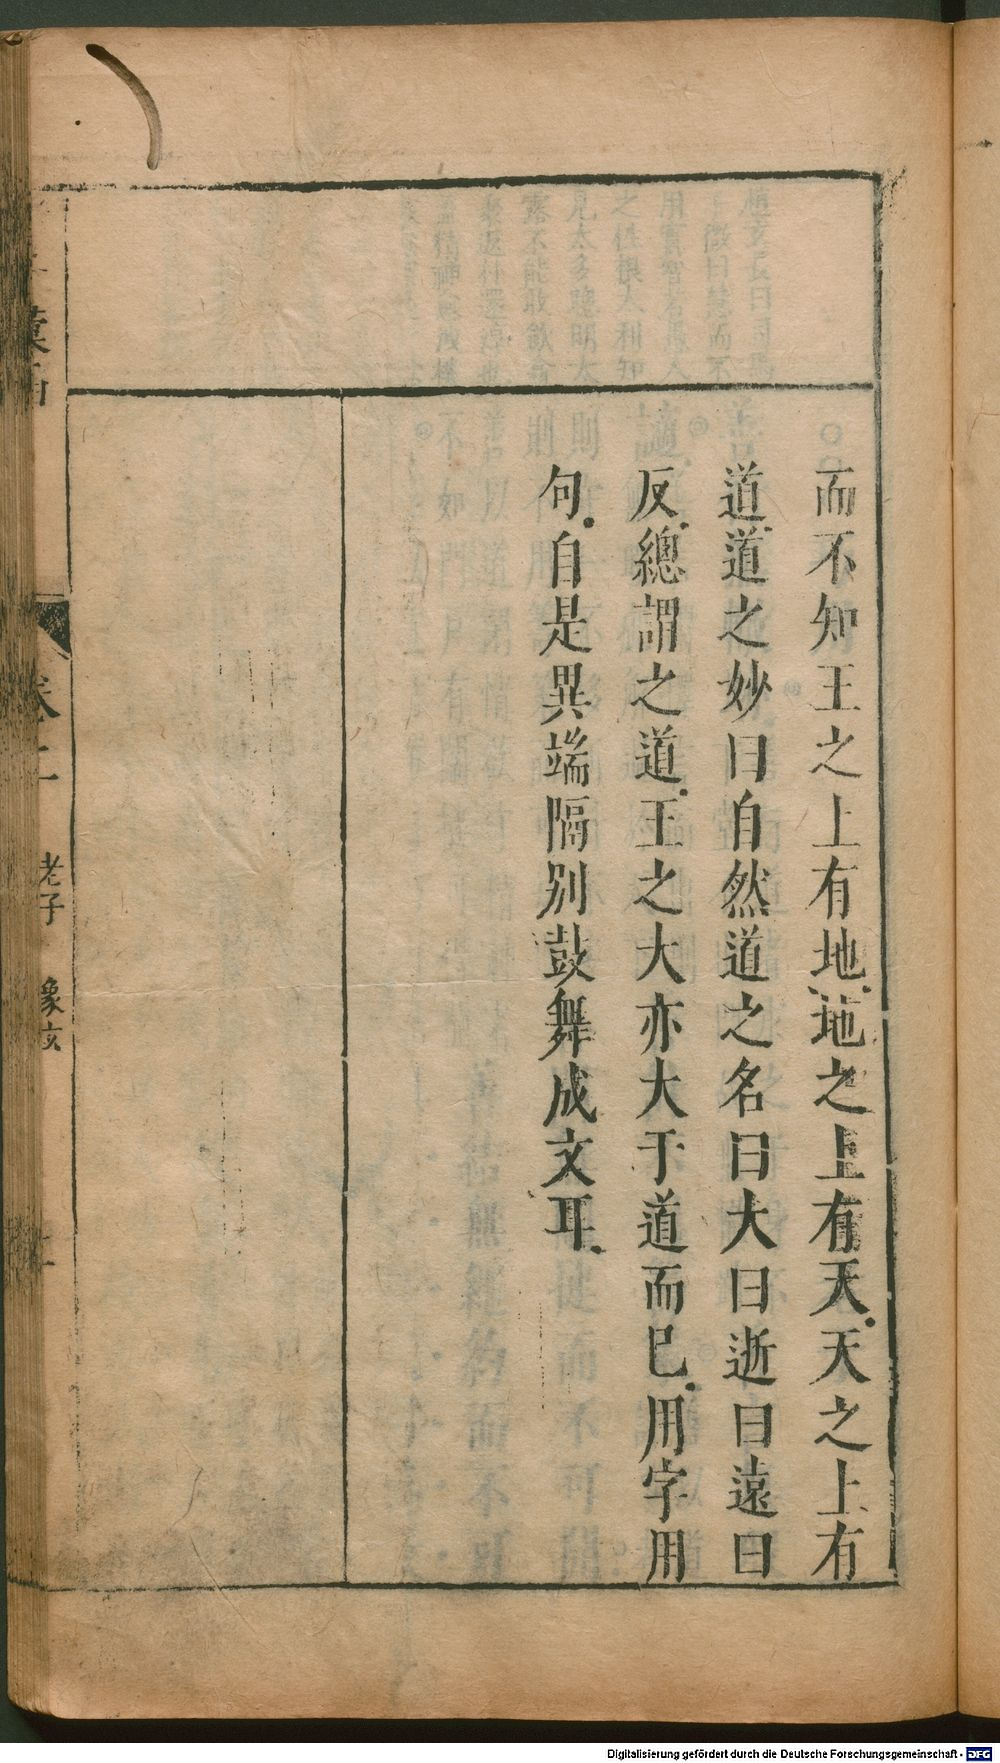 而不知王之上有地地之上有天天之上有
道道之妙曰自然道之名曰大曰逝曰遠曰
反總謂之道王之大亦大于道而已用字用
句自是異端隔別鼓舞成文耳
老子 象玄
Digitalisierung gefördert durch die Deutsche Forschungsgemeinschaft - DFG